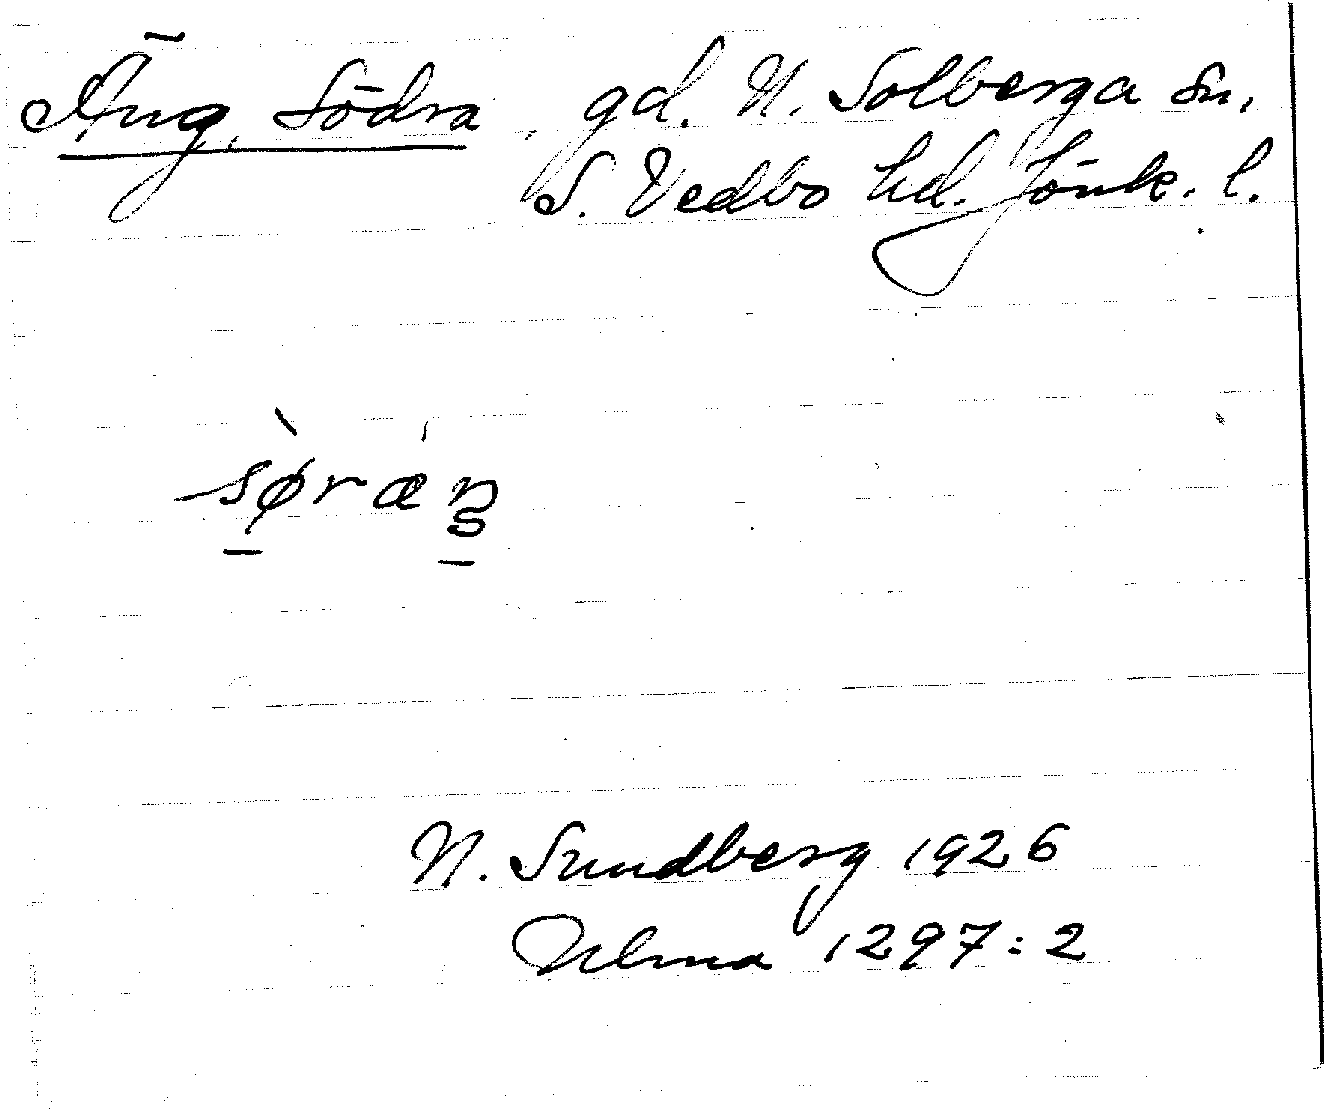 Äng, Södra, gd. N. Solberga sn,
S. Vedbo hd. Jönk. l.
sø̀ræŋ
N. Sundberg 1926
Ulma 1297:2